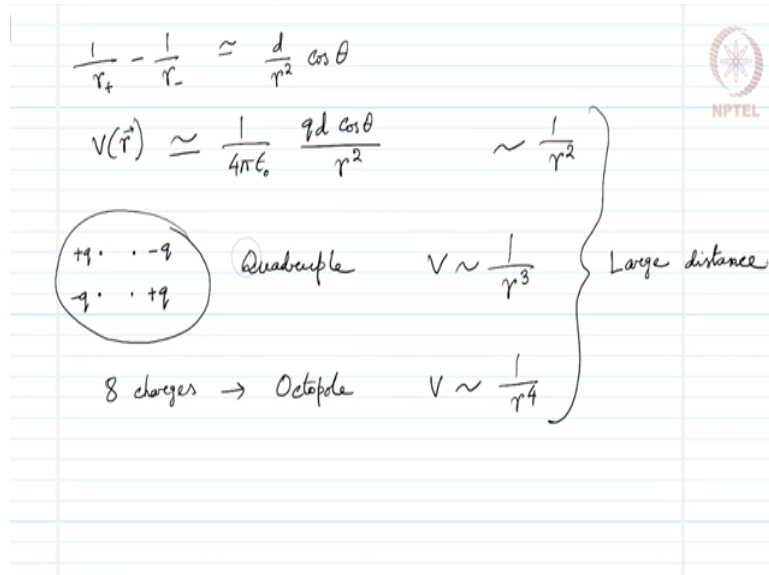 1/r₊ - 1/r₋ ≃ d/r² cos θ
NPTEL
V(r⃗) ≃ 1/4πϵ₀ qd cosθ/r² ~ 1/r²
+q · · -q Quadruple V ~ 1/r³ } Large distance
-q · · +q
8 charges → Octopole V ~ 1/r⁴